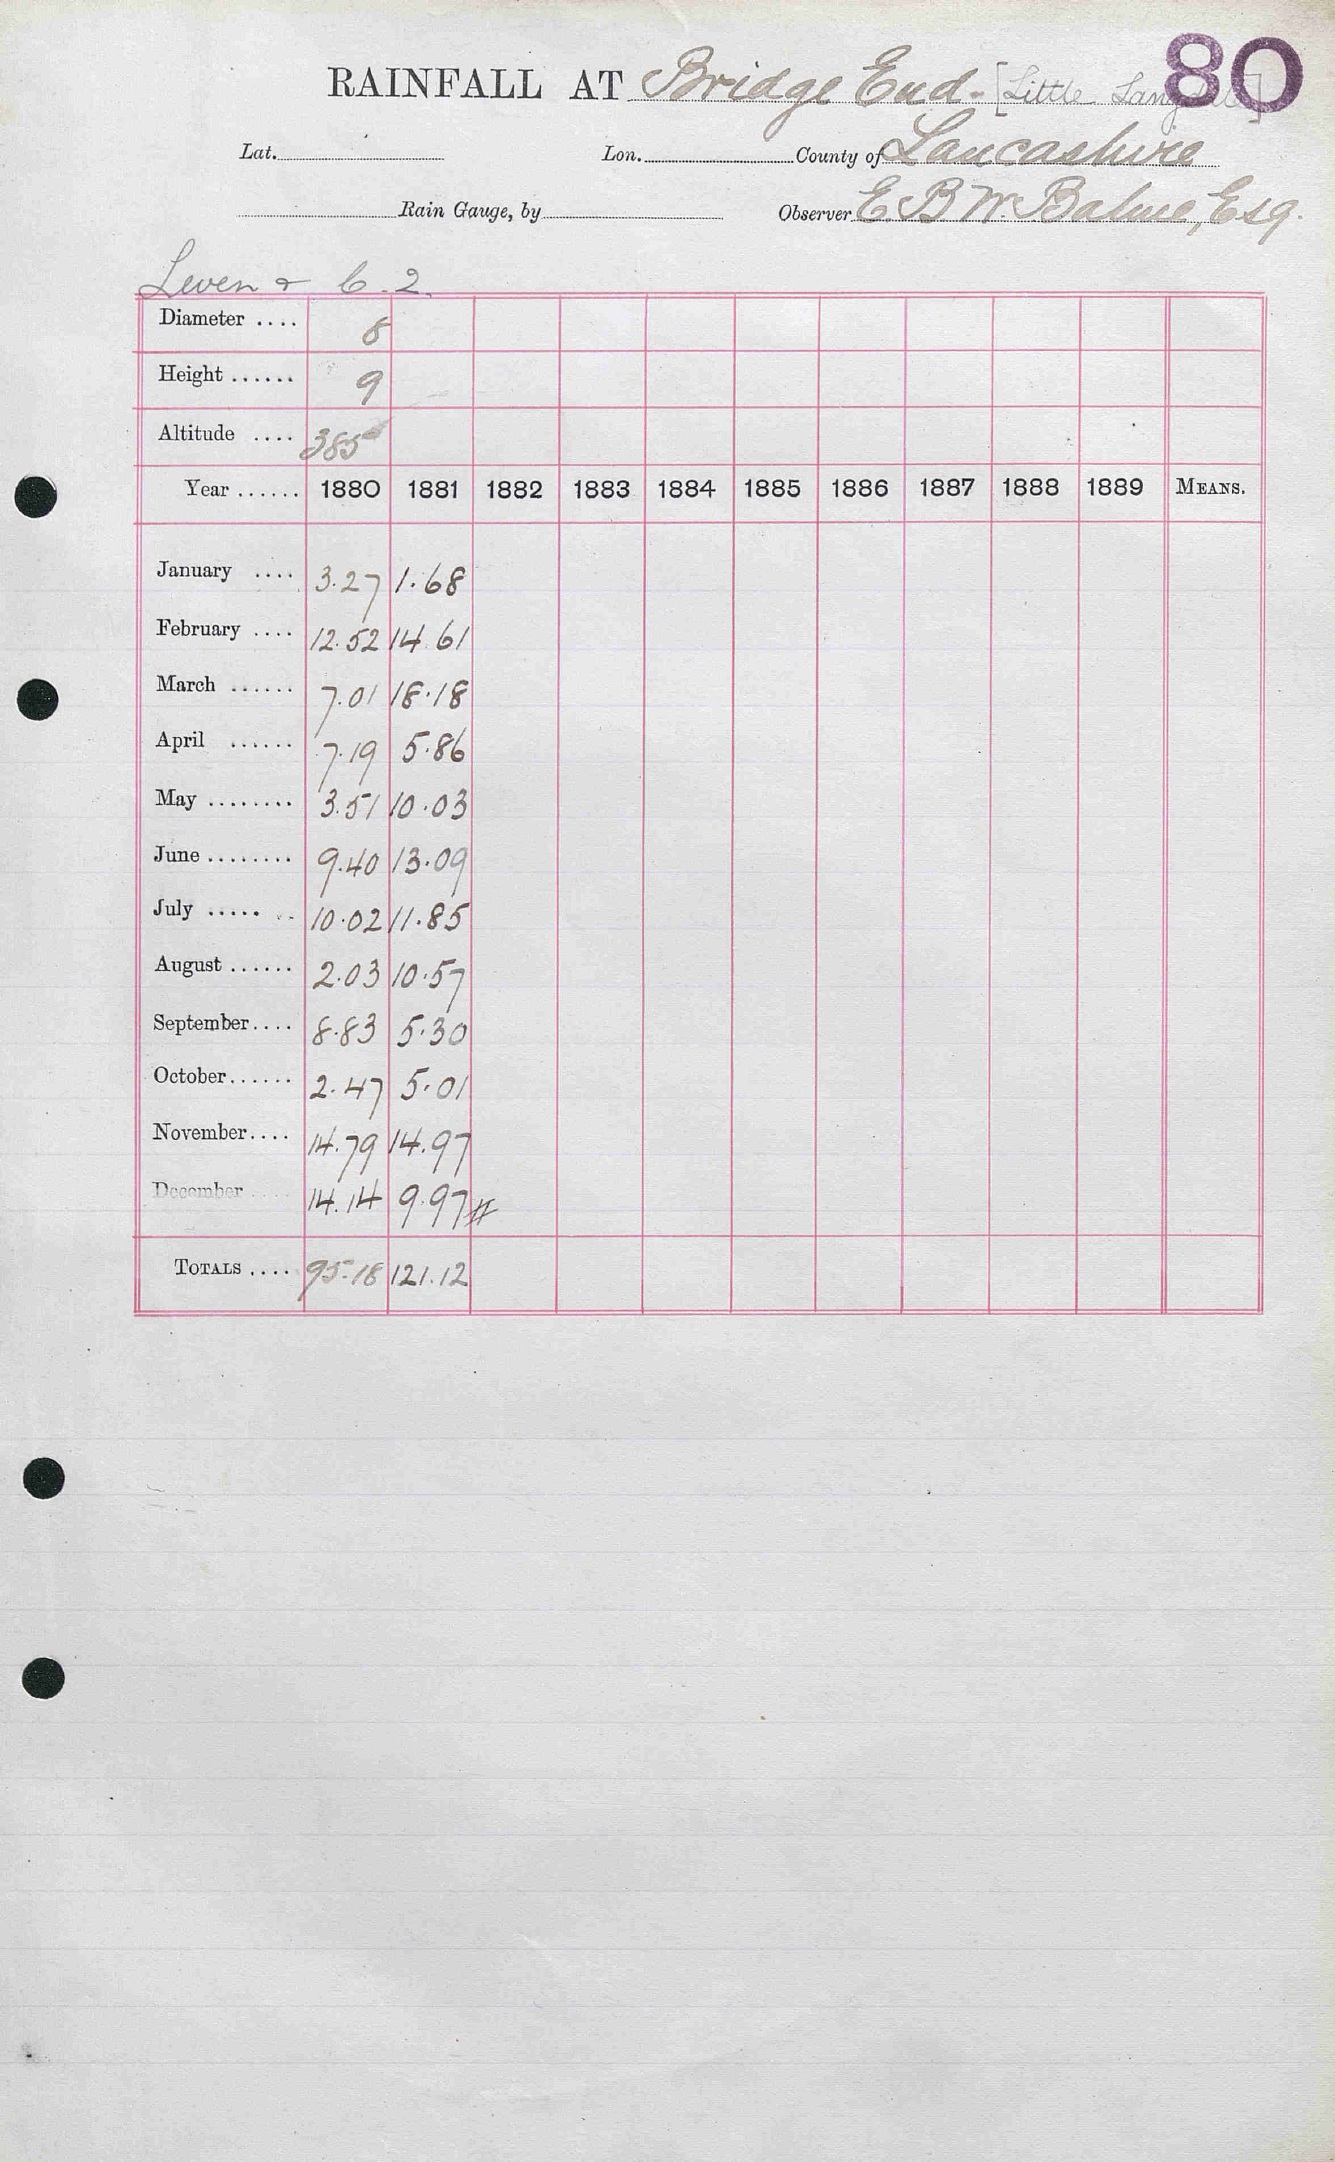 80
RAINFALL AT Bridge End. [Little Langdale]
Lat. Lon. County of Lancashire
Rain Gauge, by Observer E. B. W. Balme, Esq.
Leven & C. 2.
Diameter .... 8
Height ...... 9
Altitude .... 385
Year ...... 1880 1881 1882 1883 1884 1885 1886 1887 1888 1889 MEANS.
January .... 3.27 1.68
February .... 12.52 14.61
March ...... 7.01 18.18
April ...... 7.19 5.86
May ........ 3.51 10.03
June ........ 9.40 13.09
July ..... .. 10.02 11.85
August ...... 2.03 10.57
September.... 8.83 5.30
October...... 2.47 5.01
November.... 14.79 14.97
December .... 14.14 9.97 #
TOTALS .... 95.18 121.12